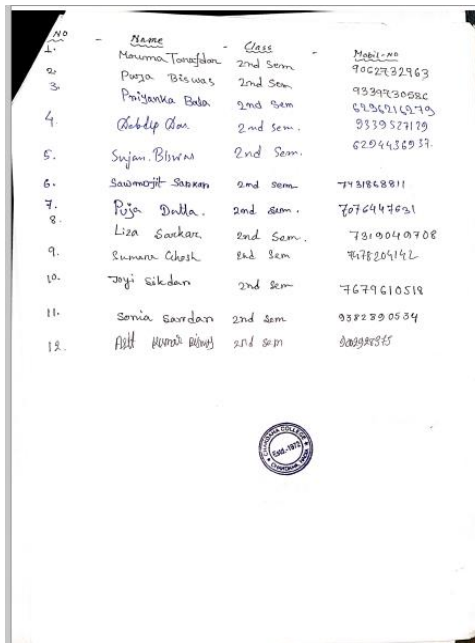 NO - Name - Class - Mobil-NO
1. Mouma Tarafdar 2nd Sem 9062732963
2. Puja Biswas 2nd Sem 9339730586
3. Priyanka Bala 2nd Sem 6296216279
4. Debdip Das 2nd Sem. 9339527129
5. Sujan. Biswas 2nd Sem. 6294436937.
6. Sawmorjit Sarkar 2nd sem 7431868811
7. Puja Dutta. 2nd sem. 7076447631
8. Liza Sarkar 2nd Sem. 7319049708
9. Sumana Ghosh 2nd Sem 7478204142
10. Joyi Sikdar 2nd Sem 7679610518
11. Sonia Sardar 2nd Sem 9382390534
12. Kumar Biswas 2nd Sem
CHAKDAHA COLLEGE
Estd.-1972
CHAKDAHA, NADIA